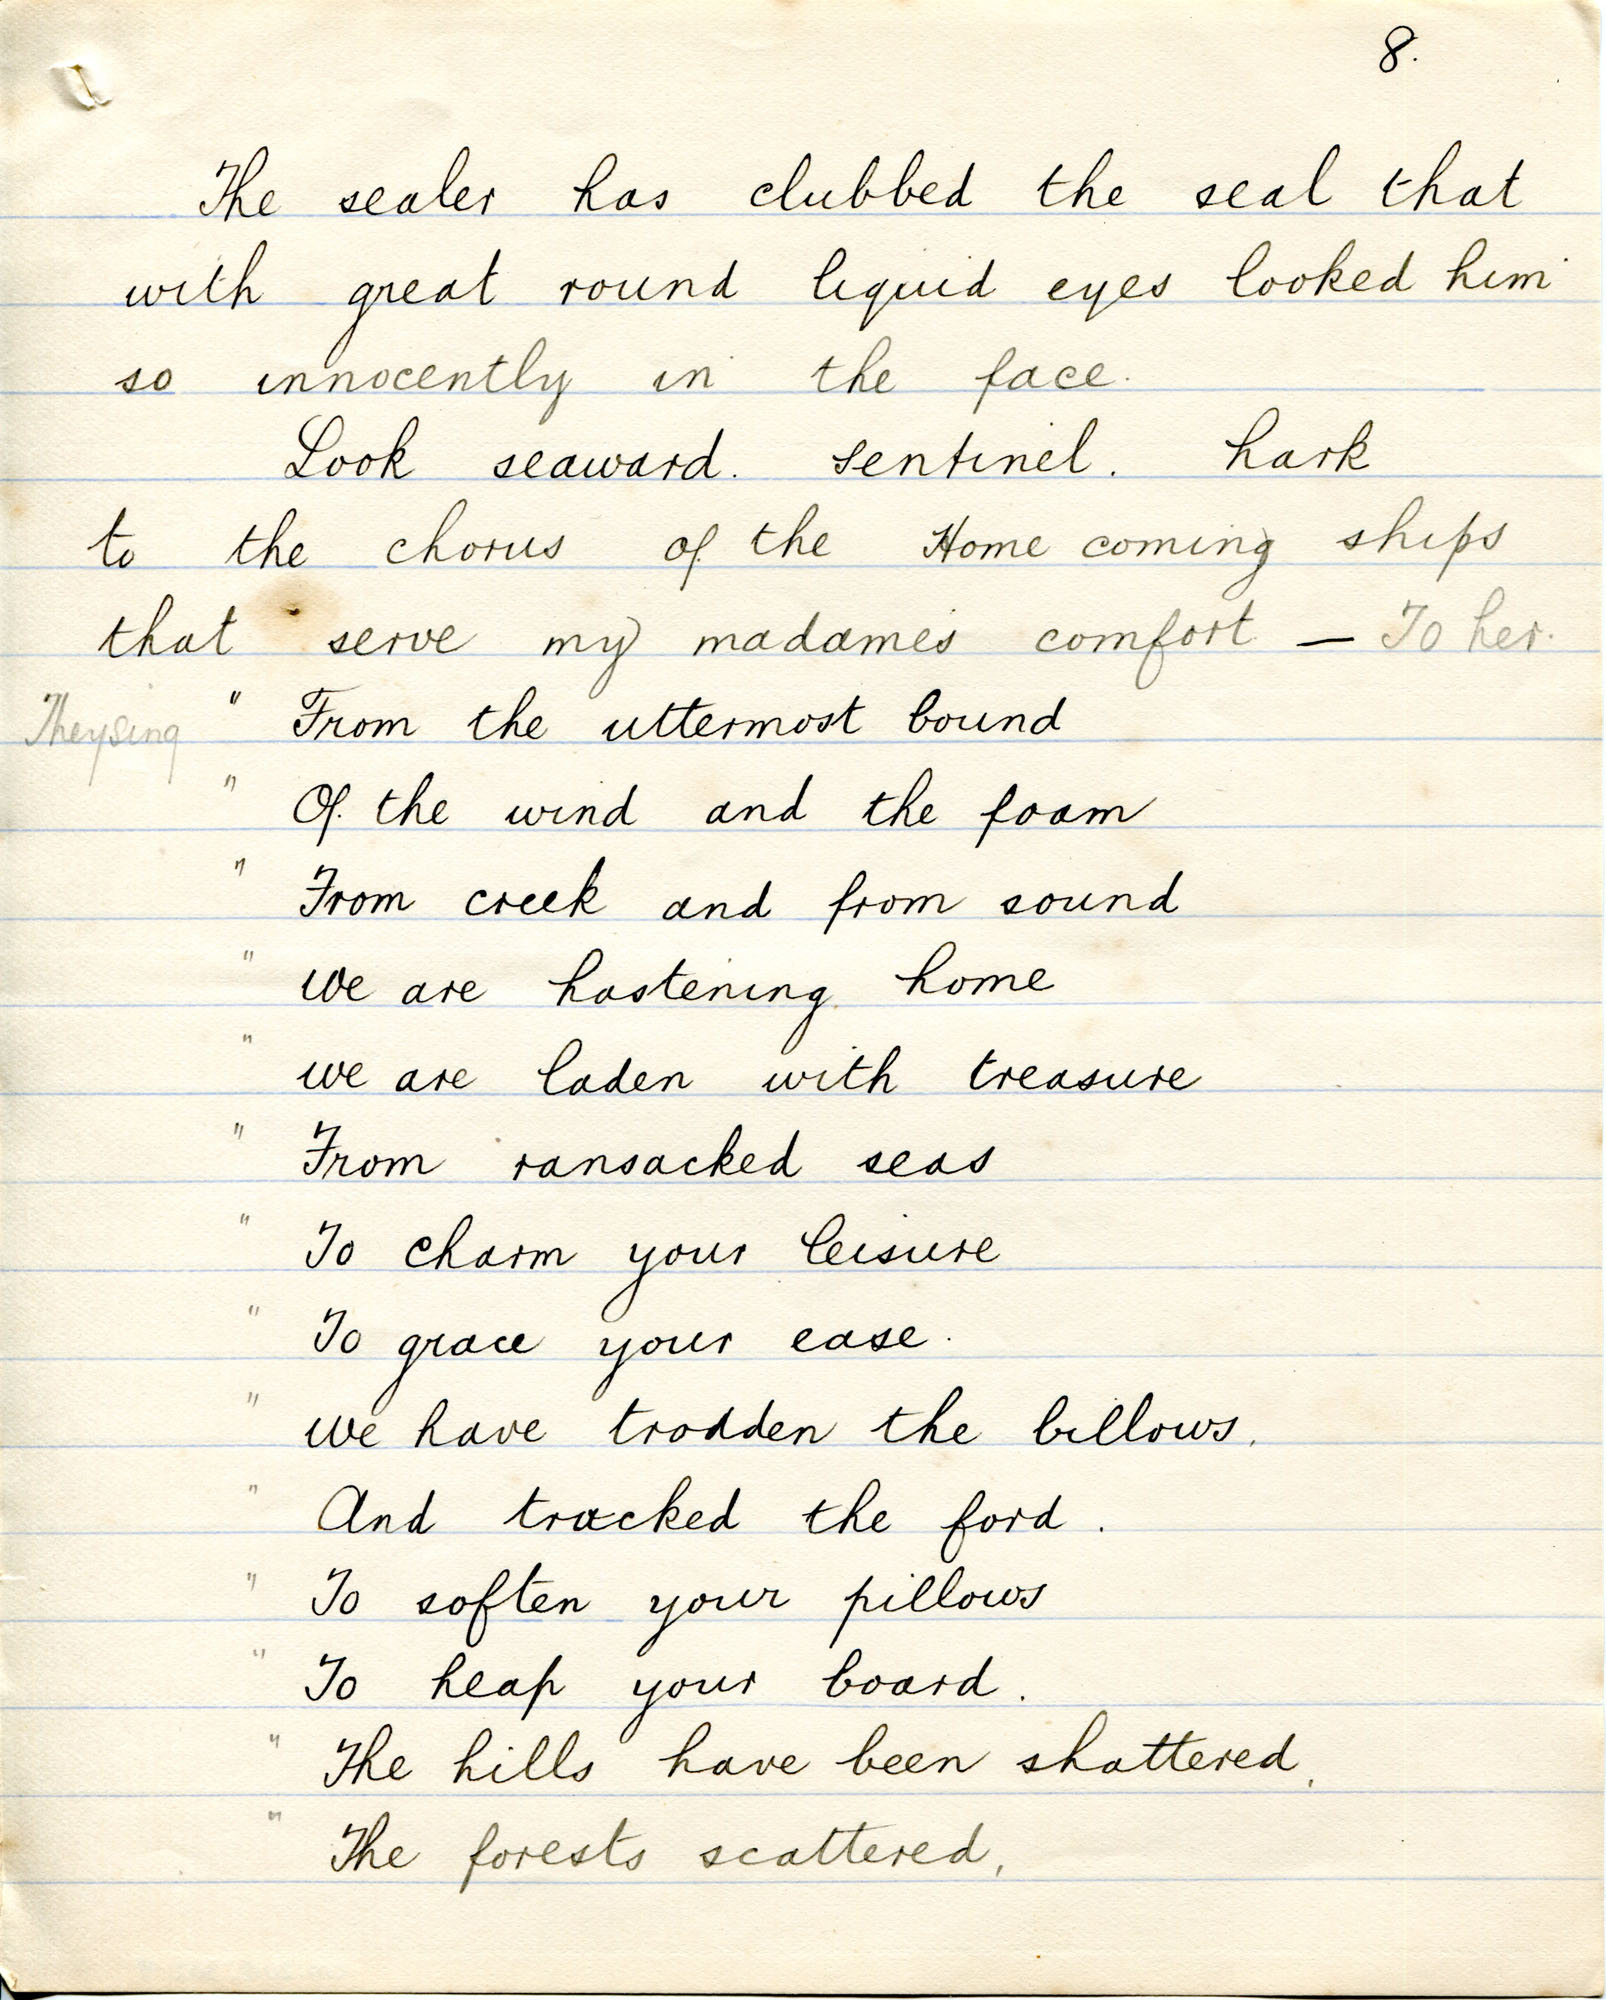 8.
The sealer has clubbed the seal that
with great round liquid eyes looked him
so innocently in the face.
Look seaward. sentinel. hark
to the chorus of the Home coming ships
that serve my madames comfort — To her.
They sing " From the uttermost bound
" Of the wind and the foam
" From creek and from sound
" We are hastening home
" we are laden with treasure
" From ransacked seas
" To charm your leisure
" To grace your ease.
" We have trodden the billows,
" And tracked the ford.
" To soften your pillows
" To heap your board.
" The hills have been shattered,
" The forests scattered,